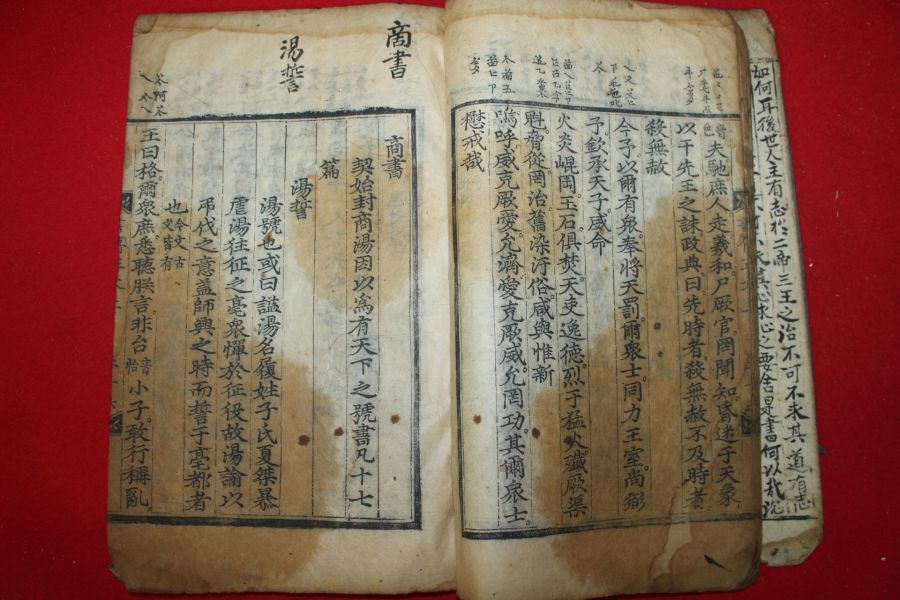 如何耳後世人主有志於二帝三王之治不可不求其道有志
求心之要舍是書何以哉沈
音色夫馳庶人走羲和尸厥官罔聞知昏迷于天象
以干先王之誅政典曰先時者殺無赦不及時者
殺無赦
今予以爾有衆奉將天罰爾衆士同力王室尚弼
予欽承天子威命
火炎崐岡玉石俱焚天吏逸德烈于猛火殲厥渠
魁脅從罔治舊染汙俗咸與惟新
嗚呼威克厥愛允濟愛克厥威允罔功其爾衆士
懋戒哉
商書
湯誓
商書
契始封商湯因以爲有天下之號書凡十七
篇
湯誓
湯號也或曰諡湯名履姓子氏夏桀暴
虐湯往征之亳衆憚於征役故湯諭以
弔伐之意蓋師興之時而誓于亳都者
也今文古文皆有
王曰格爾衆庶悉聽朕言非台音怡小子敢行稱亂